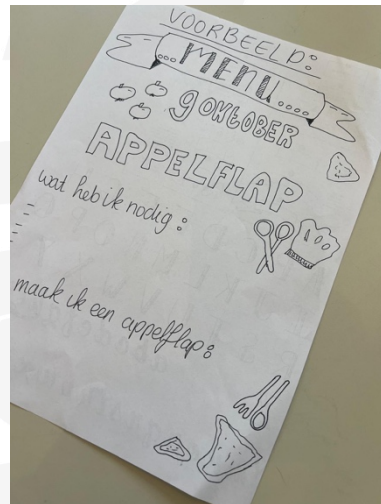 VOORBEELD:
...MENU....
9 OKTOBER
APPELFLAP
wat heb ik nodig:
-
-
-
maak ik een appelflap: